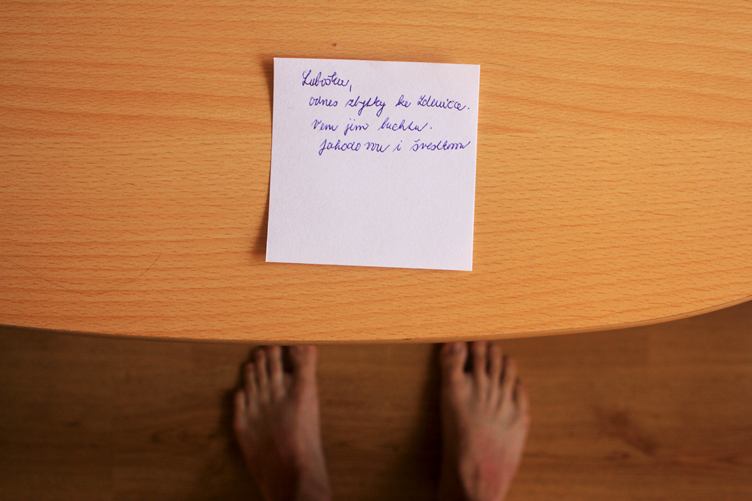 Lubošku,
odnes zbytky ke Zdenicce.
Vem jim buchtu.
Jahodovou i švestkovou